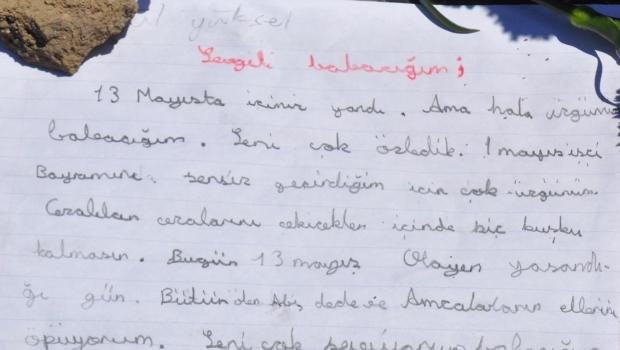 yüksel
Sevgili babacığım;
13 Mayısta içimiz yandı. Ama hala üzgünüm
babacığım. Seni çok özledik. 1 mayıs işci
Bayramını sensiz geçirdiğim için çok üzgünüm.
Cezalılar cezalarını cekicekler içinde hiç kuşku
kalmasın. Bugün 13 mayıs Olayın yaşandı-
ğı gün. Bütün dede ve Amcaların ellerini
öpüyorum. Seni çok seviyorum